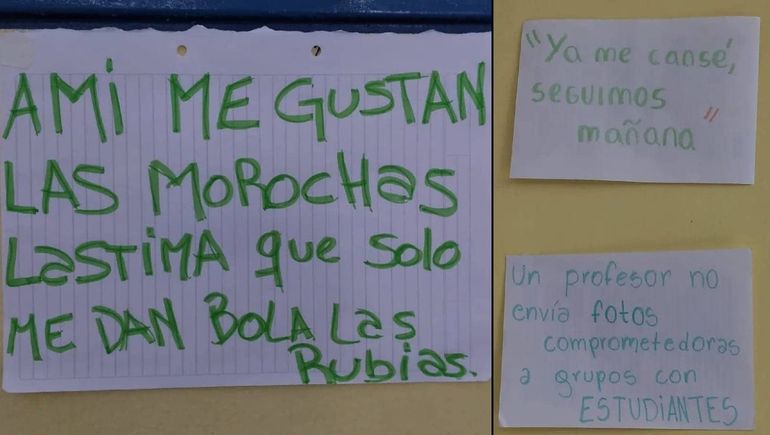 AMi ME GUSTAN
LAS MOROCHaS
LaSTiMA que Solo
ME DAN BOLA Las
Rubias.
"Ya me cansé,
SEGUIMOS
mañana"
Un profesor no
envía fotos
comprometedoras
a grupos con
ESTUDiANTES